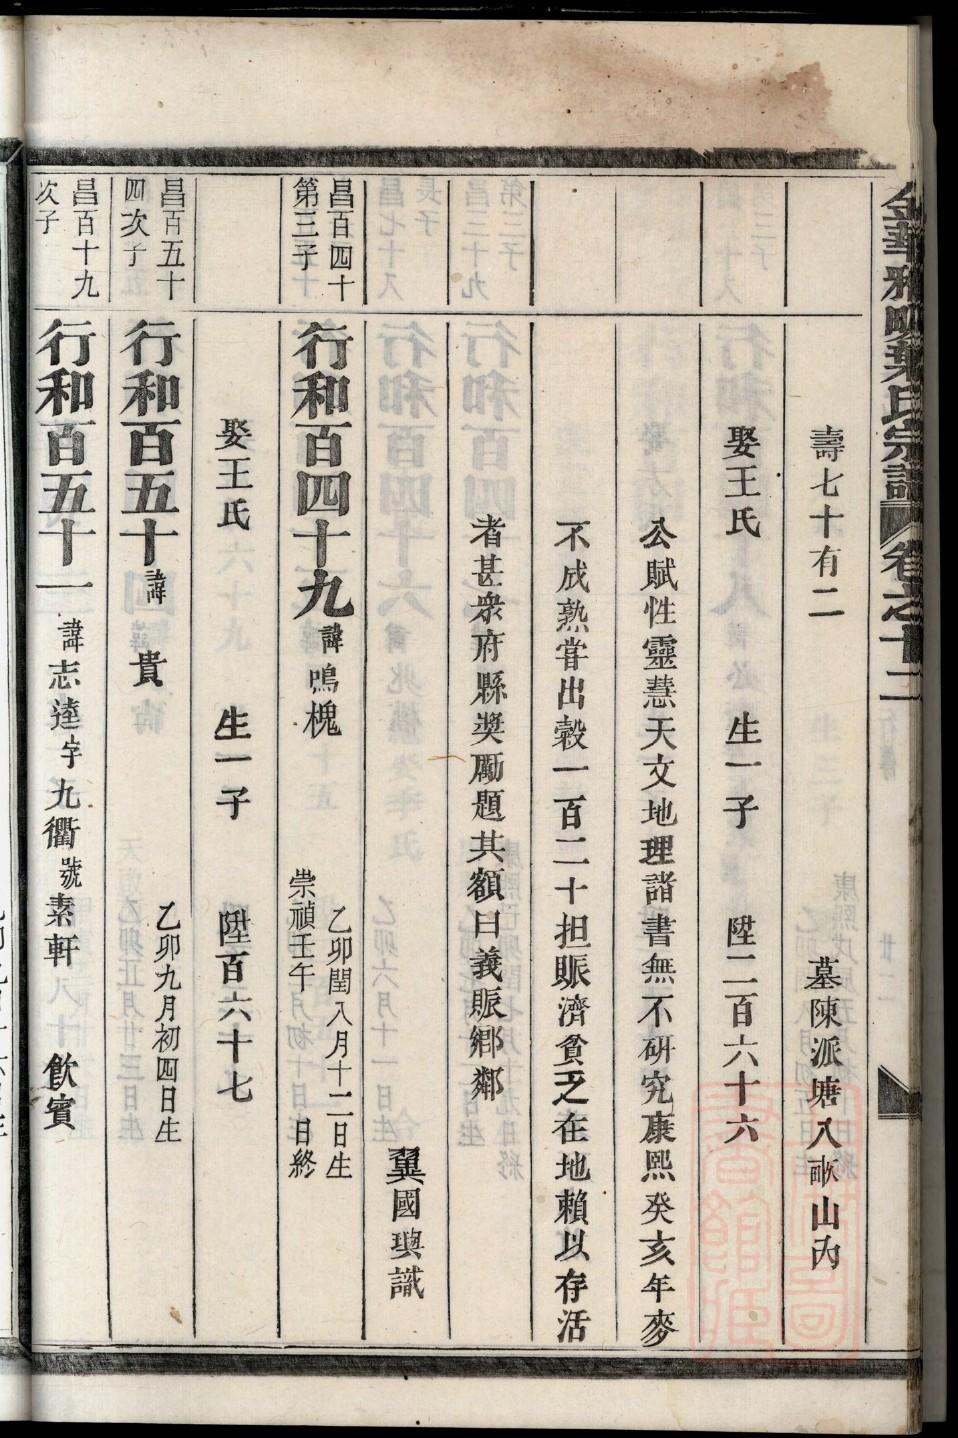 壽七十有二　墓陳派塘八畝山內
娶王氏　生一子　陞二百六十六
公賦性靈慧天文地理諸書無不研究康熙癸亥年麥
不成熟甞出穀一百二十担賑濟貧乏在地賴以存活
者甚衆府縣奬勵題其額曰義賑鄉鄰
翼國璵識
昌百四十
第三子
行和百四十九　諱鳴槐
乙卯閏八月十二日生
崇禎壬午　日終
娶王氏　生一子　陞百六十七
昌百五十
四次子
行和百五十　諱貴
乙卯九月初四日生
昌百十九
次子
行和百五十一　諱志逵字九衢號素軒　飲賓
葉氏宗譜　卷之十二